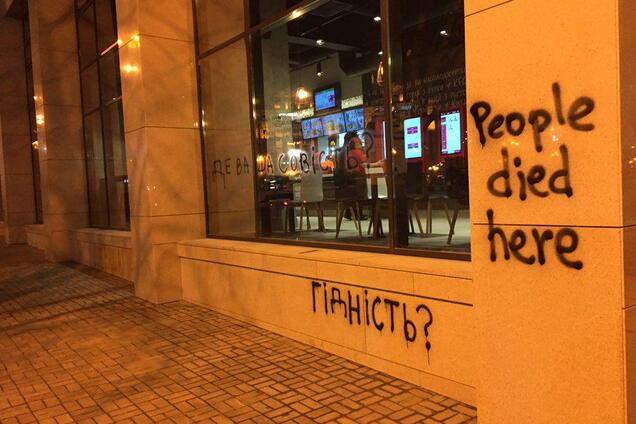 ДЕ ВАША СОВІСТЬ?
People
died
here
ГІДНІСТЬ?